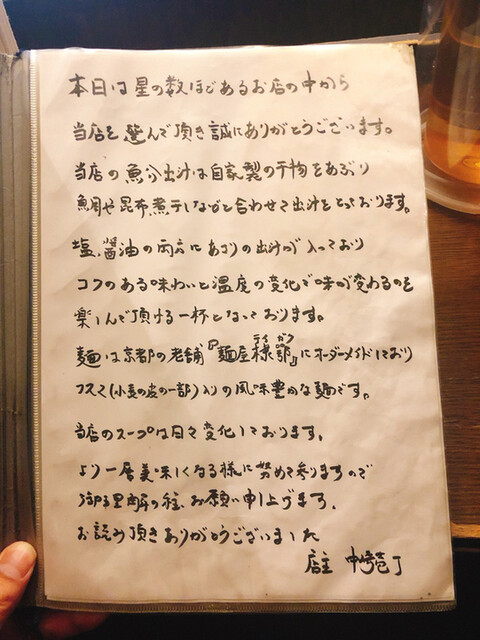 本日は星の数ほどあるお店の中から
当店を選んで頂き誠にありがとうございます。
当店の魚介出汁は自家製の干物をあぶり
鯛や昆布煮干しなどと合わせて出汁をとっております。
塩、醤油の両方にあさりの出汁が入っており
コクのある味わいと温度の変化で味が変わるのを
楽しんで頂ける一杯となっております。
麺は京都の老舗『麺屋棣鄂』にオーダーメイドしており
テイガク
フスマ(小麦の皮の一部)入りの風味豊かな麺です。
当店のスープは日々変化しております。
より一層美味しくなる様に努めて参りますので
御理解の程、お願い申し上げます。
お読み頂きありがとうございました
店主 中崎壱丁